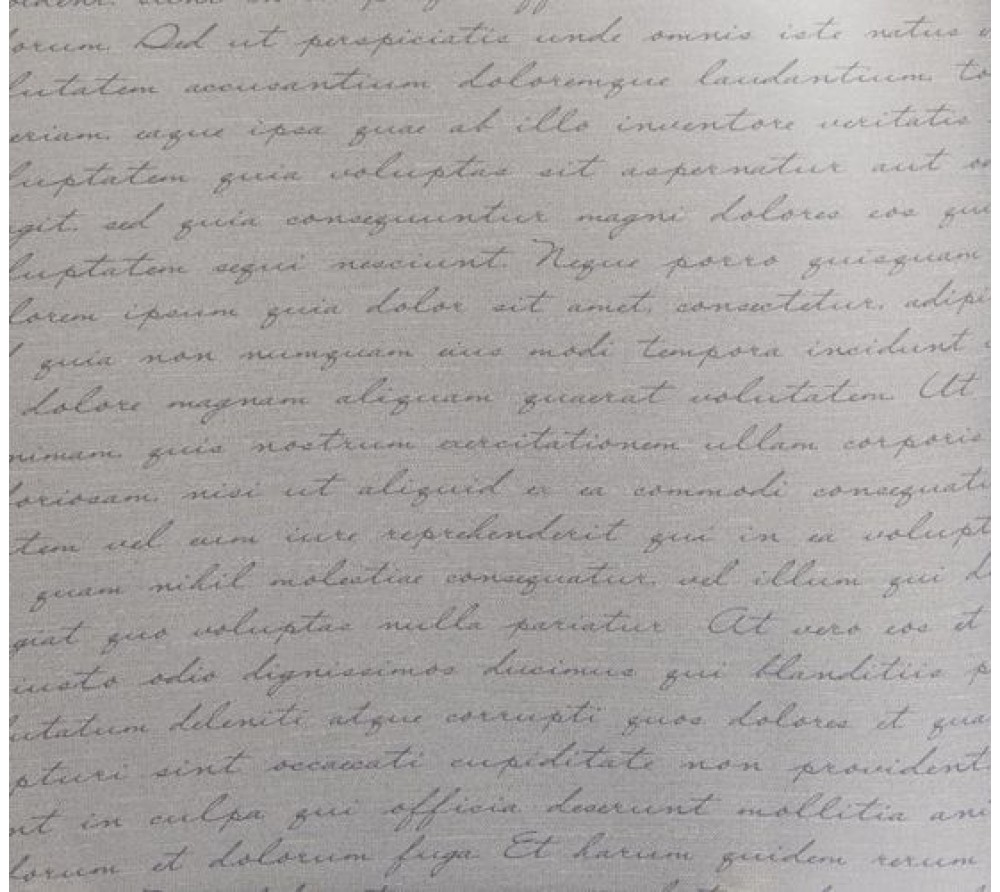 orum. Sed ut perspiciatis unde omnis iste natus
lutatem accusantium doloremque laudantium. to
eriam. eaque ipsa quae ab illo inventore veritatis
luptatem quia voluptas sit aspernatur aut
git. sed quia consequuntur magni dolores eos qui
luptatem sequi nesciunt. Neque porro quisquam
lorem ipsum quia dolor sit amet. consectetur. adipi
quia non numquam eius modi tempora incidunt
dolore magnam aliquam quaerat volutatem. Ut
nimam. quis nostrum exercitationem ullam corporis
loriosam. nisi ut aliquid ex ea commodi consequati
tem vel eum iure reprehenderit qui in ea volupt
quam nihil molestiae consequatur. vel illum qui
giat quo voluptas nulla pariatur. At vero eos et
iusto odio dignissimos ducimus qui blanditiis p
utatum deleniti atque corrupti quos dolores et qua
pturi sint occaecati cupiditate non provident.
nt in culpa qui officia deserunt mollitia ani
lorum et dolorum fuga. Et harum quidem rerum